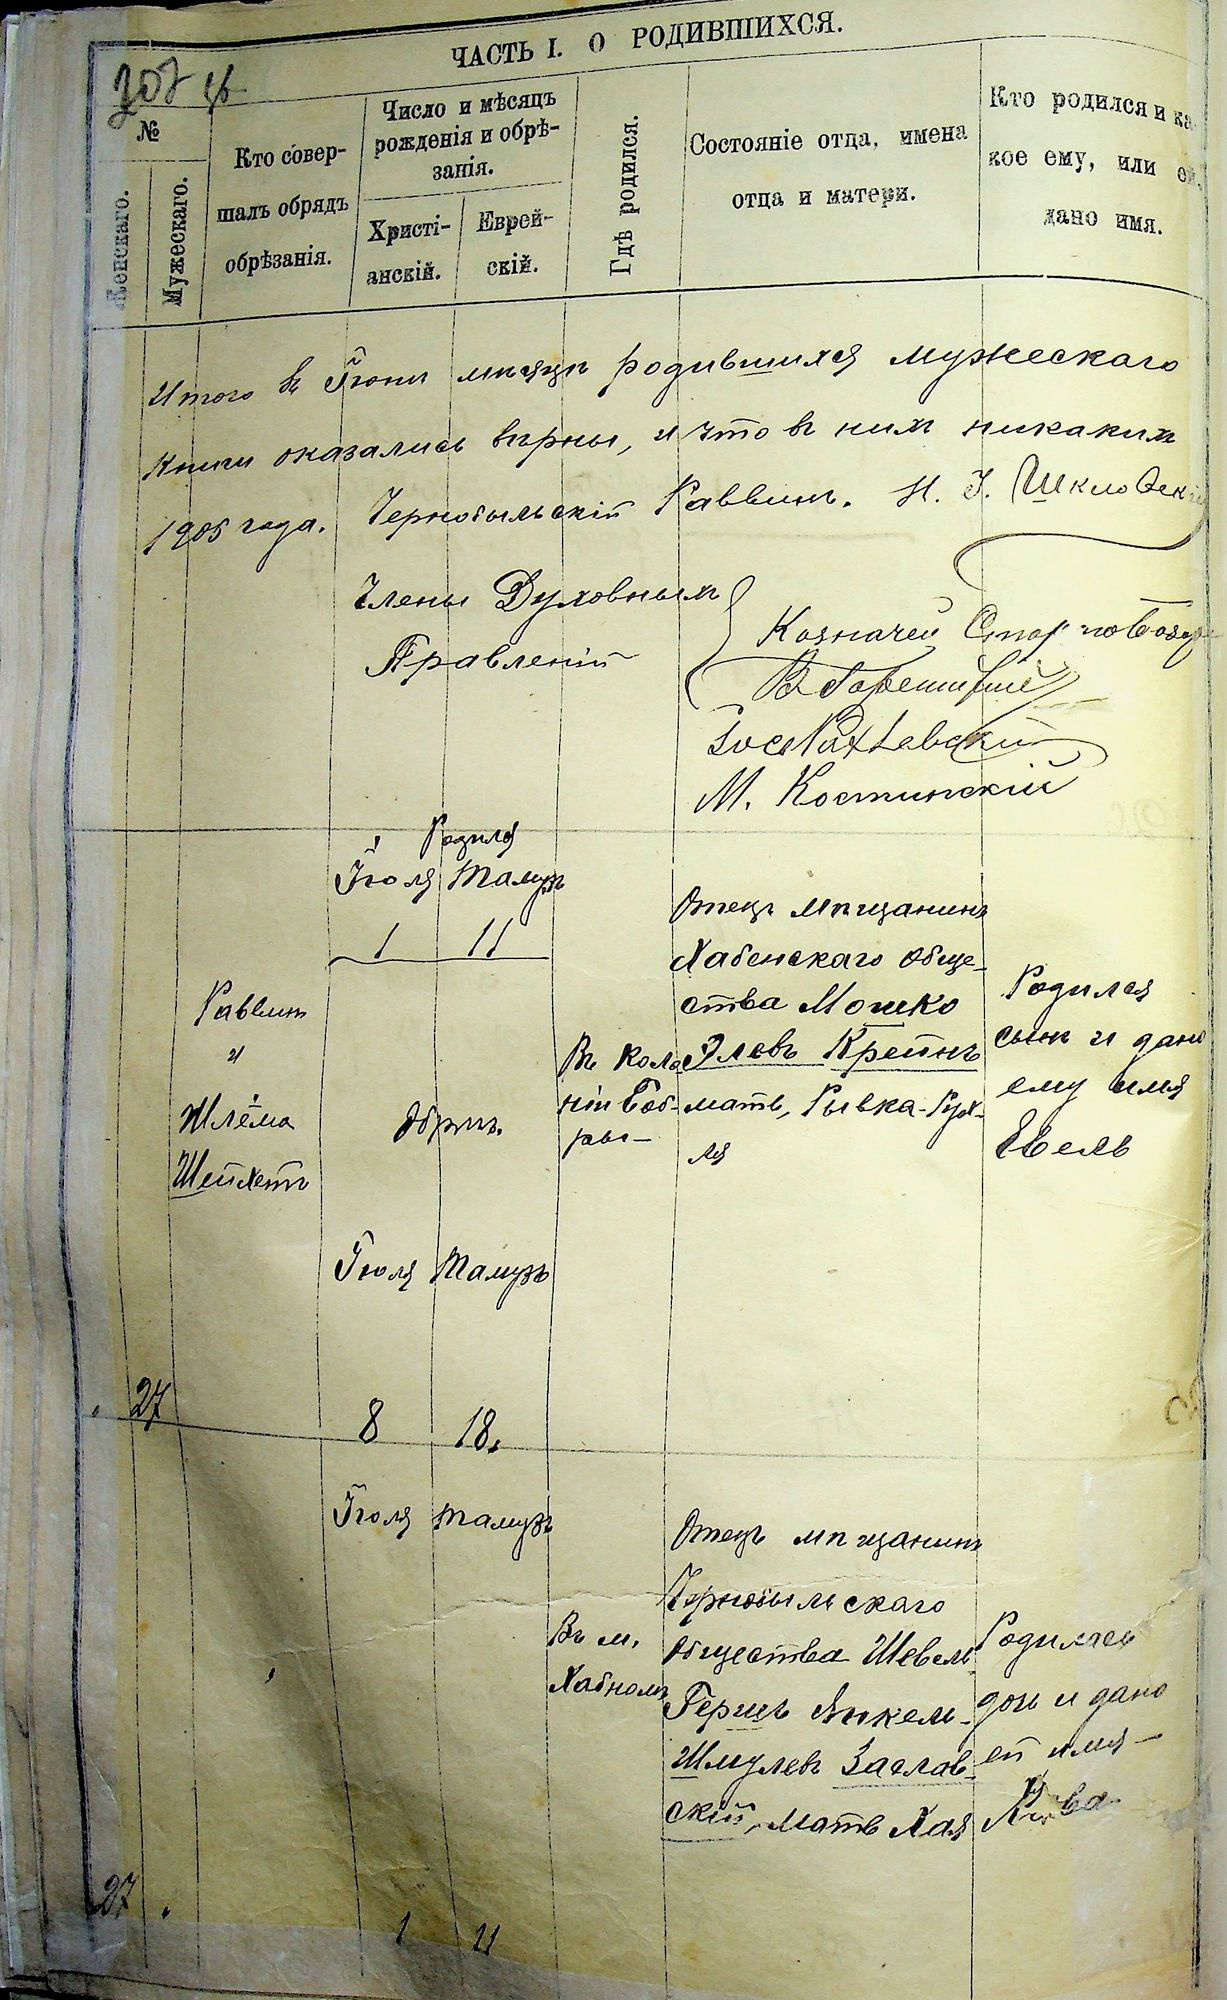 ЧАСТЬ I. О РОДИВШИХСЯ.
207
№
Женскаго.
Мужескаго.
Кто совер-
шалъ обрядъ
обрѣзанія.
Число и мѣсяцъ
рожденія и обрѣ-
занія.
Христі-
анскій.
Еврей-
скій.
Гдѣ родился.
Состояніе отца, имена
отца и матери.
Кто родился и ка-
кое ему, или ей,
дано имя.
Итого въ Іюнѣ мѣсяцѣ родившихся мужескаго
книги оказались вѣрны, и что въ нихъ никакихъ
1905 года. Чернобыльскій Раввинъ. И. І. Шкловскій
Члены Духовныхъ
Правленій
Казначей
М. Костинскій
Родился
Іюля Тамузъ
1 11
Раввинъ
и
Шлёма
Шейхетъ
Обрѣз.
Іюля Тамузъ
27
8 18.
Въ коло
ніи Боб-
ры-
Отецъ мѣщанинъ
Хабенскаго обще-
ства Мошко
Элевъ Крейнъ
мать, Рывка-Рух-
ля
Родился
сынъ и дано
ему имя
Евель
Іюля Тамузъ
Въ м.
Хабномъ
Отецъ мѣщанинъ
Чернобыльскаго
общества Шевель
Гершъ Янкель-
Шмулевъ Заслав-
скій, мать Хая
Родилась
дочь и дано
ей имя-
27
1 11